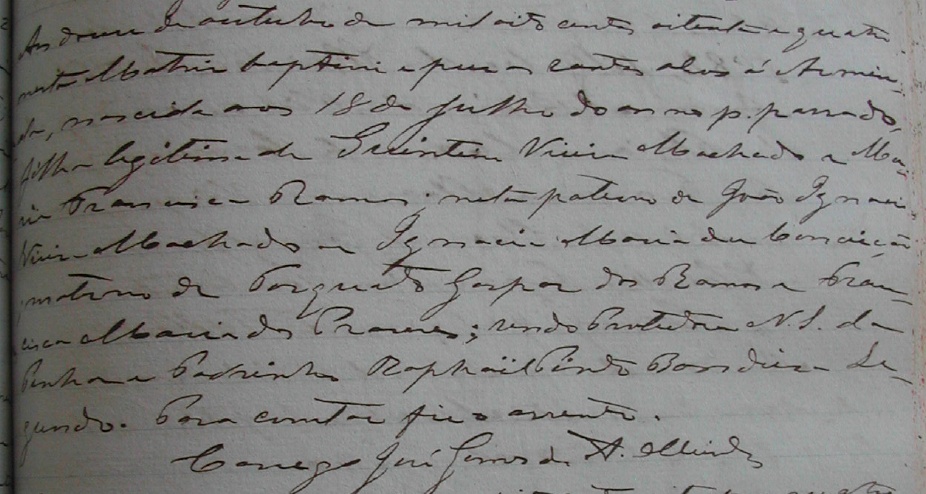 Aos doze de outubro de mil oito centos oitenta e quatro
nesta Matriz baptisei e puz os santos oleos á Armin-
da, nascida aos 18 de Julho do anno p. passado,
filha legitima de Quintin Vieira Machado e Ma-
ria Francisca Ramos; neta paterno de João Ignacio
Vieira Machado e Ignacia Maria da Conceição
materno de Torquato Gaspar dos Ramos e Fran-
cisca Maria dos Prazeres; sendo Protectora N. S. da
Penha e Padrinho Raphäel Pinto Bandeira Se-
gundo. Para constar fiz o assento.
Conego José Gomes de A. Meirelles